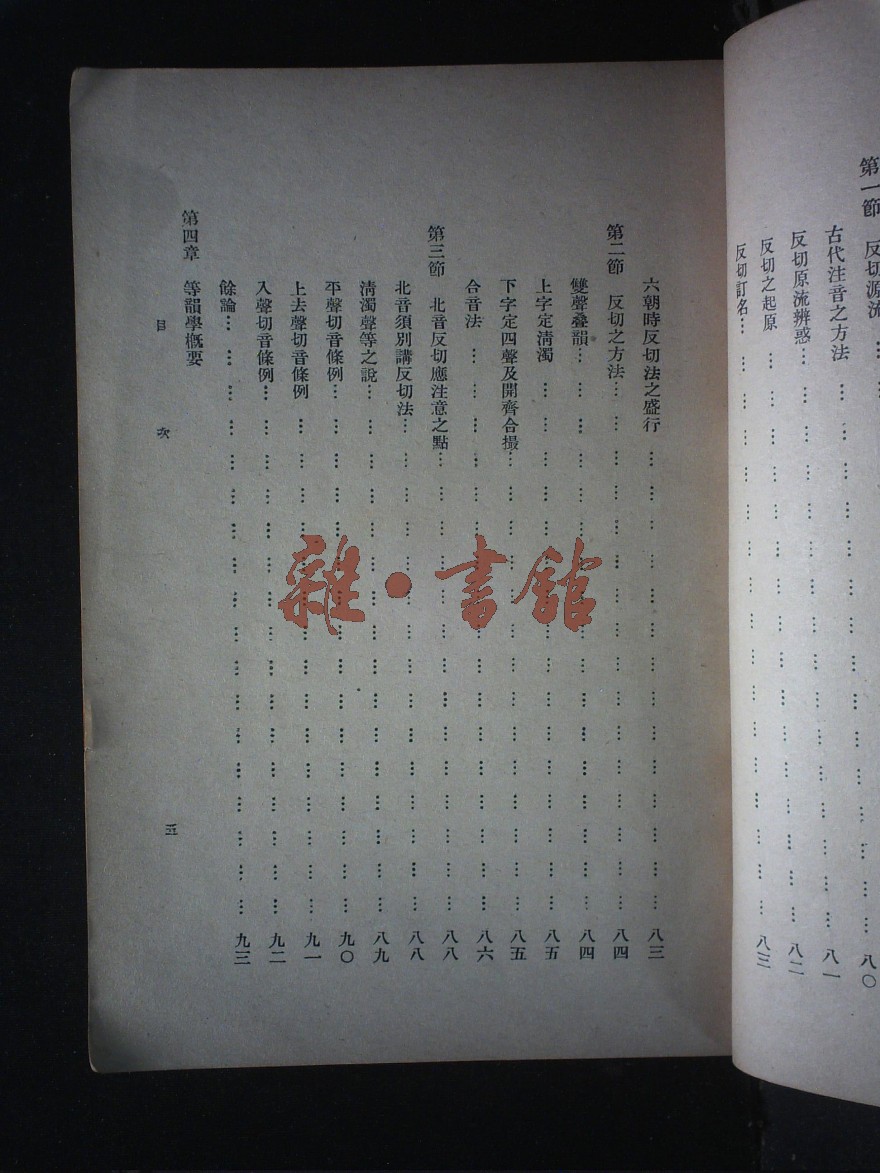 第一節 反切源流 八〇
古代注音之方法 八一
反切原流辨惑 八二
反切之起原
反切訂名 八三
六朝時反切法之盛行 八三
第二節 反切之方法 八四
雙聲疊韻 八四
上字定清濁 八五
下字定四聲及開齊合撮 八五
合音法 八六
第三節 北音反切應注意之點 八八
北音須別講反切法 八八
清濁聲等之說 八九
平聲切音條例 九〇
上去聲切音條例 九一
入聲切音條例 九二
餘論 九三
第四章 等韻學概要
目次
三
雜·書館